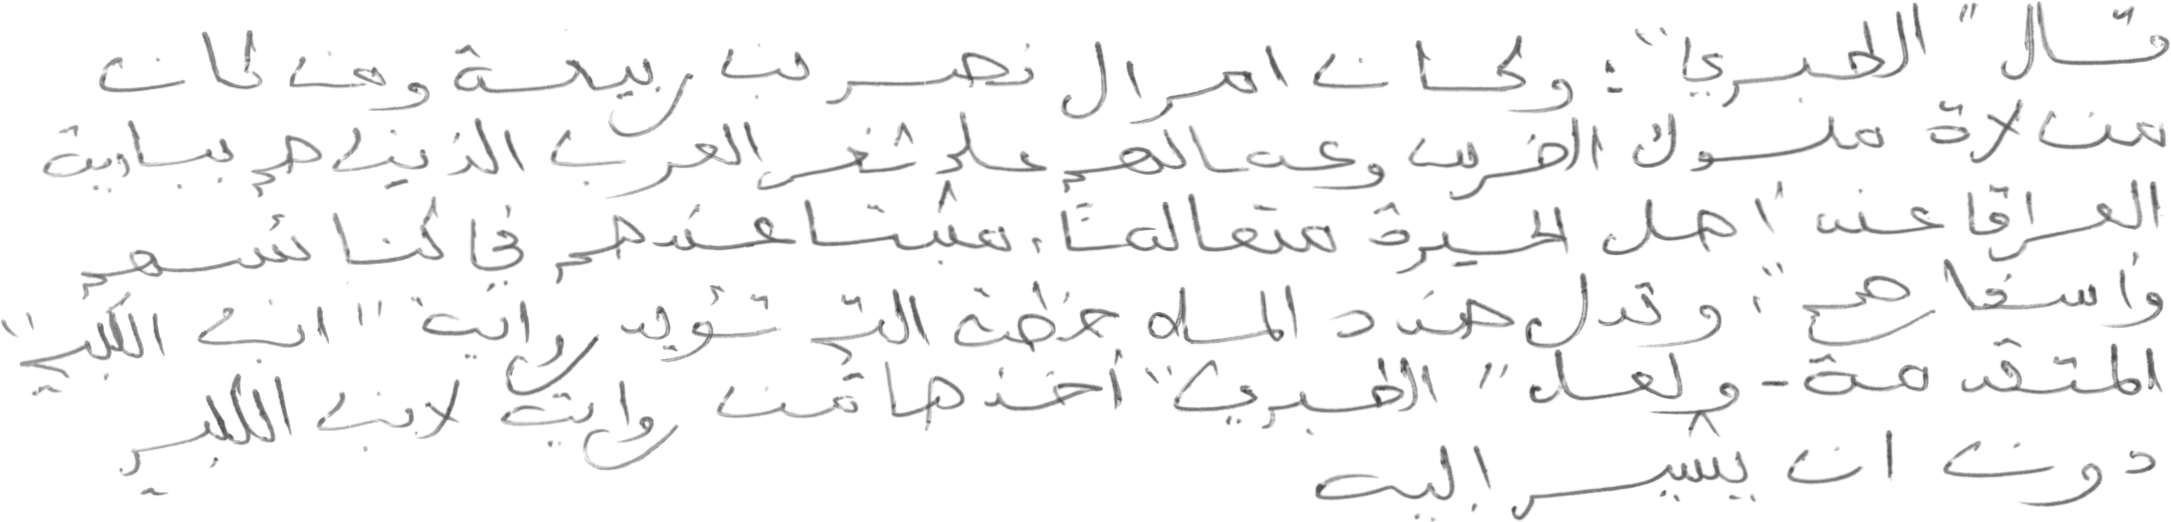 قال "الطبري": وكان امر ال نصر بن ربيعة ومن كان
من لاة ملوك الفرس وعمالهم على ثغر العرب الذين هم ببادية
العراق عند أهل الحيرة متعالمًا، مثبتا عندهم في كنائسهم
وأسفارهم". وتدل هذه الملاحظة التي تؤيد رواية "ابن الكلبي"
المتقدمة - ولعل "الطبري" أخذها من رواية لابن الكلبي
دون ان يشير اليه